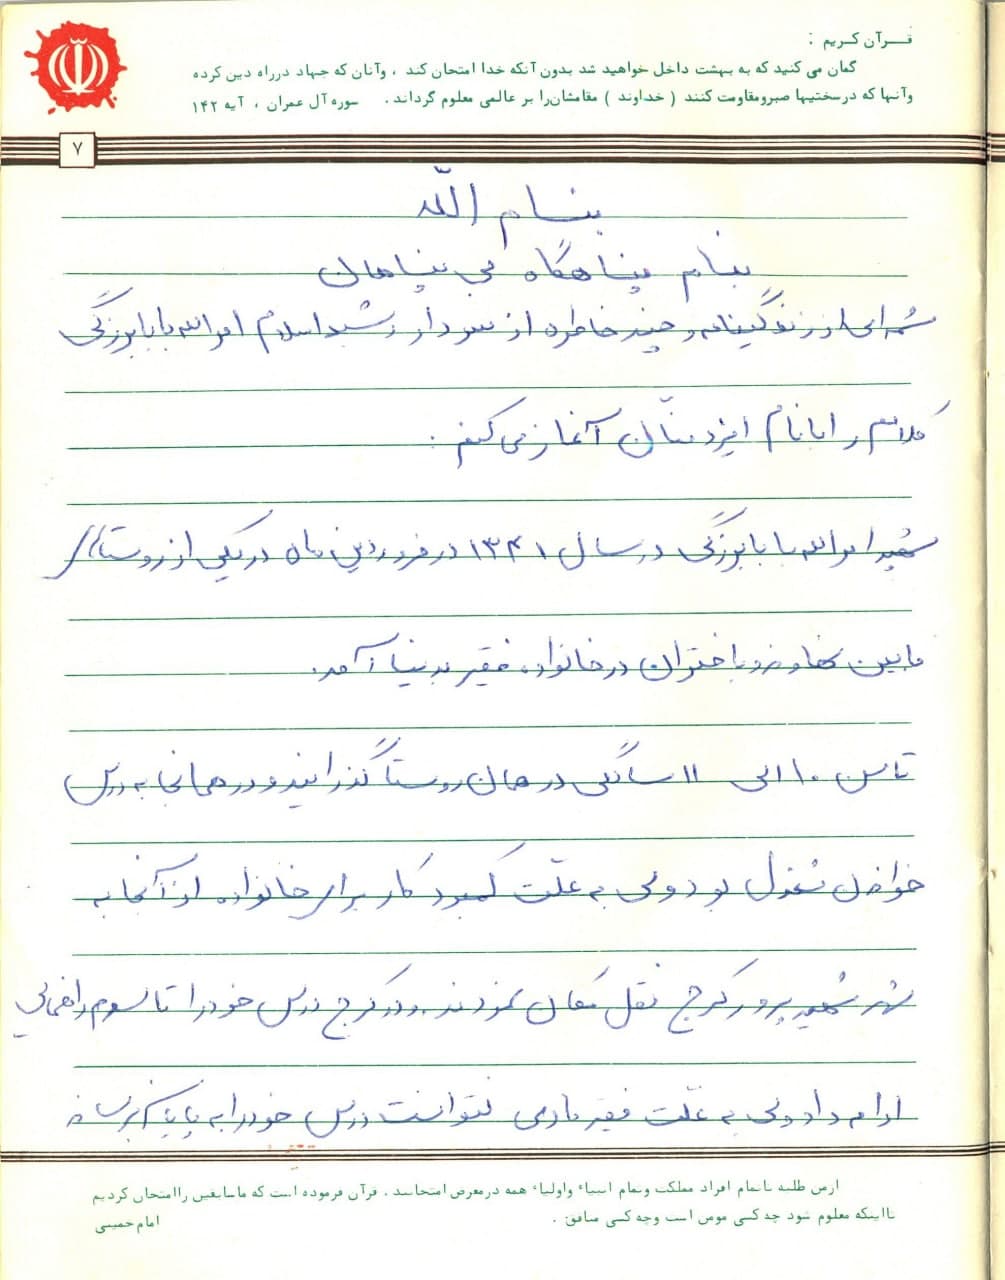 قـــرآن کـریم :
گمان می کنید که به بهشت داخل خواهید شد بدون آنکه خدا امتحان کند ، وآنان که جهاد درراه دین کرده
وآنها که درسختیها صبرومقاومت کنند ( خداوند ) مقامشان را بر عالمی معلوم گرداند . سوره آل عمران ، آیه ۱۴۲
۷
بنام اللّه
بنام پناهگاه بی پناهان
شمه ای از زندگینامه و چند خاطره از سردار رشید اسلام امرالله بابابزرگی
کلامم را با نام ایزد منّان آغاز می کنم :
شهید امرالله بابابزرگی در سال ۱۳۴۱ در فروردین ماه در یکی از روستاهای
مابین نهاوند و باختران در خانواده فقیر بدنیا آمد.
تا سن ۱۰ الی ۱۱ سالگی در همان روستا گذرانید و در همانجا به درس
خواندن مشغول بود ولی به علّت کمبود کار برای خانواده از آنجا به
شهر شهید پرور کرج نقل مکان نمودند و در کرج درس خود را تا سوم راهنمائی
ادامه داد ولی به علّت فقر مادی نتوانست درس خود را به پایان برساند
ازمن طلبه تاتمام افراد مملکت وتمام انبیاء واولیاء همه درمعرض امتحانند . قرآن فرموده است که ماسابقین راامتحان کردیم
تااینکه معلوم شود چه کسی مومن است وچه کسی منافق .
امام خمینی